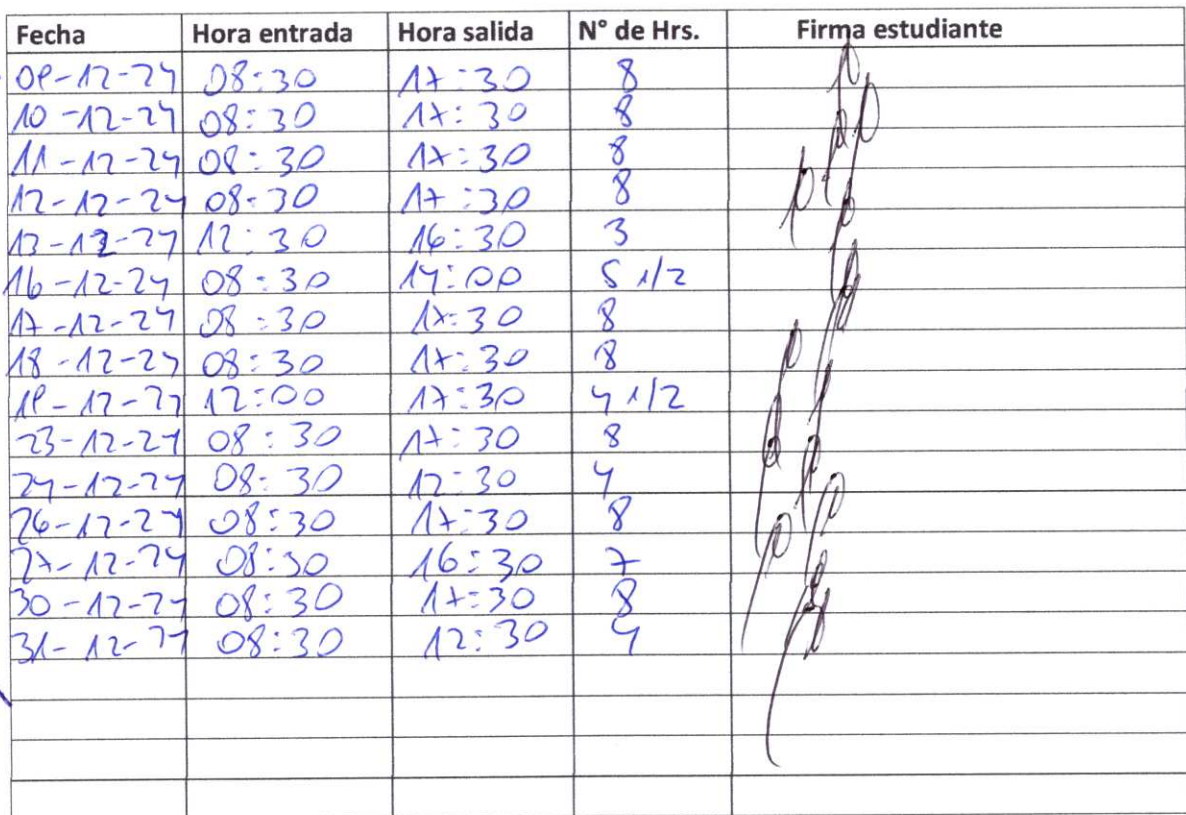 Fecha Hora entrada Hora salida N° de Hrs. Firma estudiante
09-12-24 08:30 17:30 8
10-12-24 08:30 17:30 8
11-12-24 08:30 17:30 8
12-12-24 08:30 17:30 8
13-12-24 12:30 16:30 3
16-12-24 08:30 14:00 5 1/2
17-12-24 08:30 17:30 8
18-12-24 08:30 17:30 8
19-12-24 12:00 17:30 4 1/2
23-12-24 08:30 17:30 8
24-12-24 08:30 12:30 4
26-12-24 08:30 17:30 8
27-12-24 08:30 16:30 7
30-12-24 08:30 17:30 8
31-12-24 08:30 12:30 4